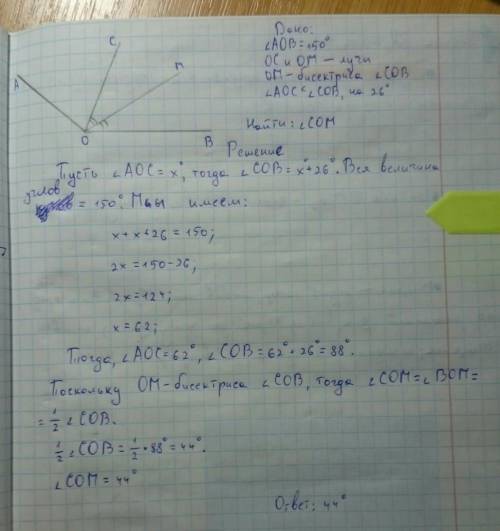 Дано:
∠AOB=150°
OC и OM – лучи
OM-бисектриса ∠COB
∠AOC < ∠COB, на 26°
Найти: ∠COM
A
C
M
O
B
Решение
Пусть ∠AOC=x°, тогда ∠COB=x°+26°. Вся величина
углов = 150°. Мы имеем:
x+x+26=150;
2x=150-26;
2x=124;
x=62;
Тогда, ∠AOC=62°, ∠COB=62°+26°=88°.
Поскольку OM-бисектриса ∠COB, тогда ∠COM=∠BOM=
=1/2 ∠COB.
1/2 ∠COB=1/2•88°=44°.
∠COM=44°
Ответ: 44°